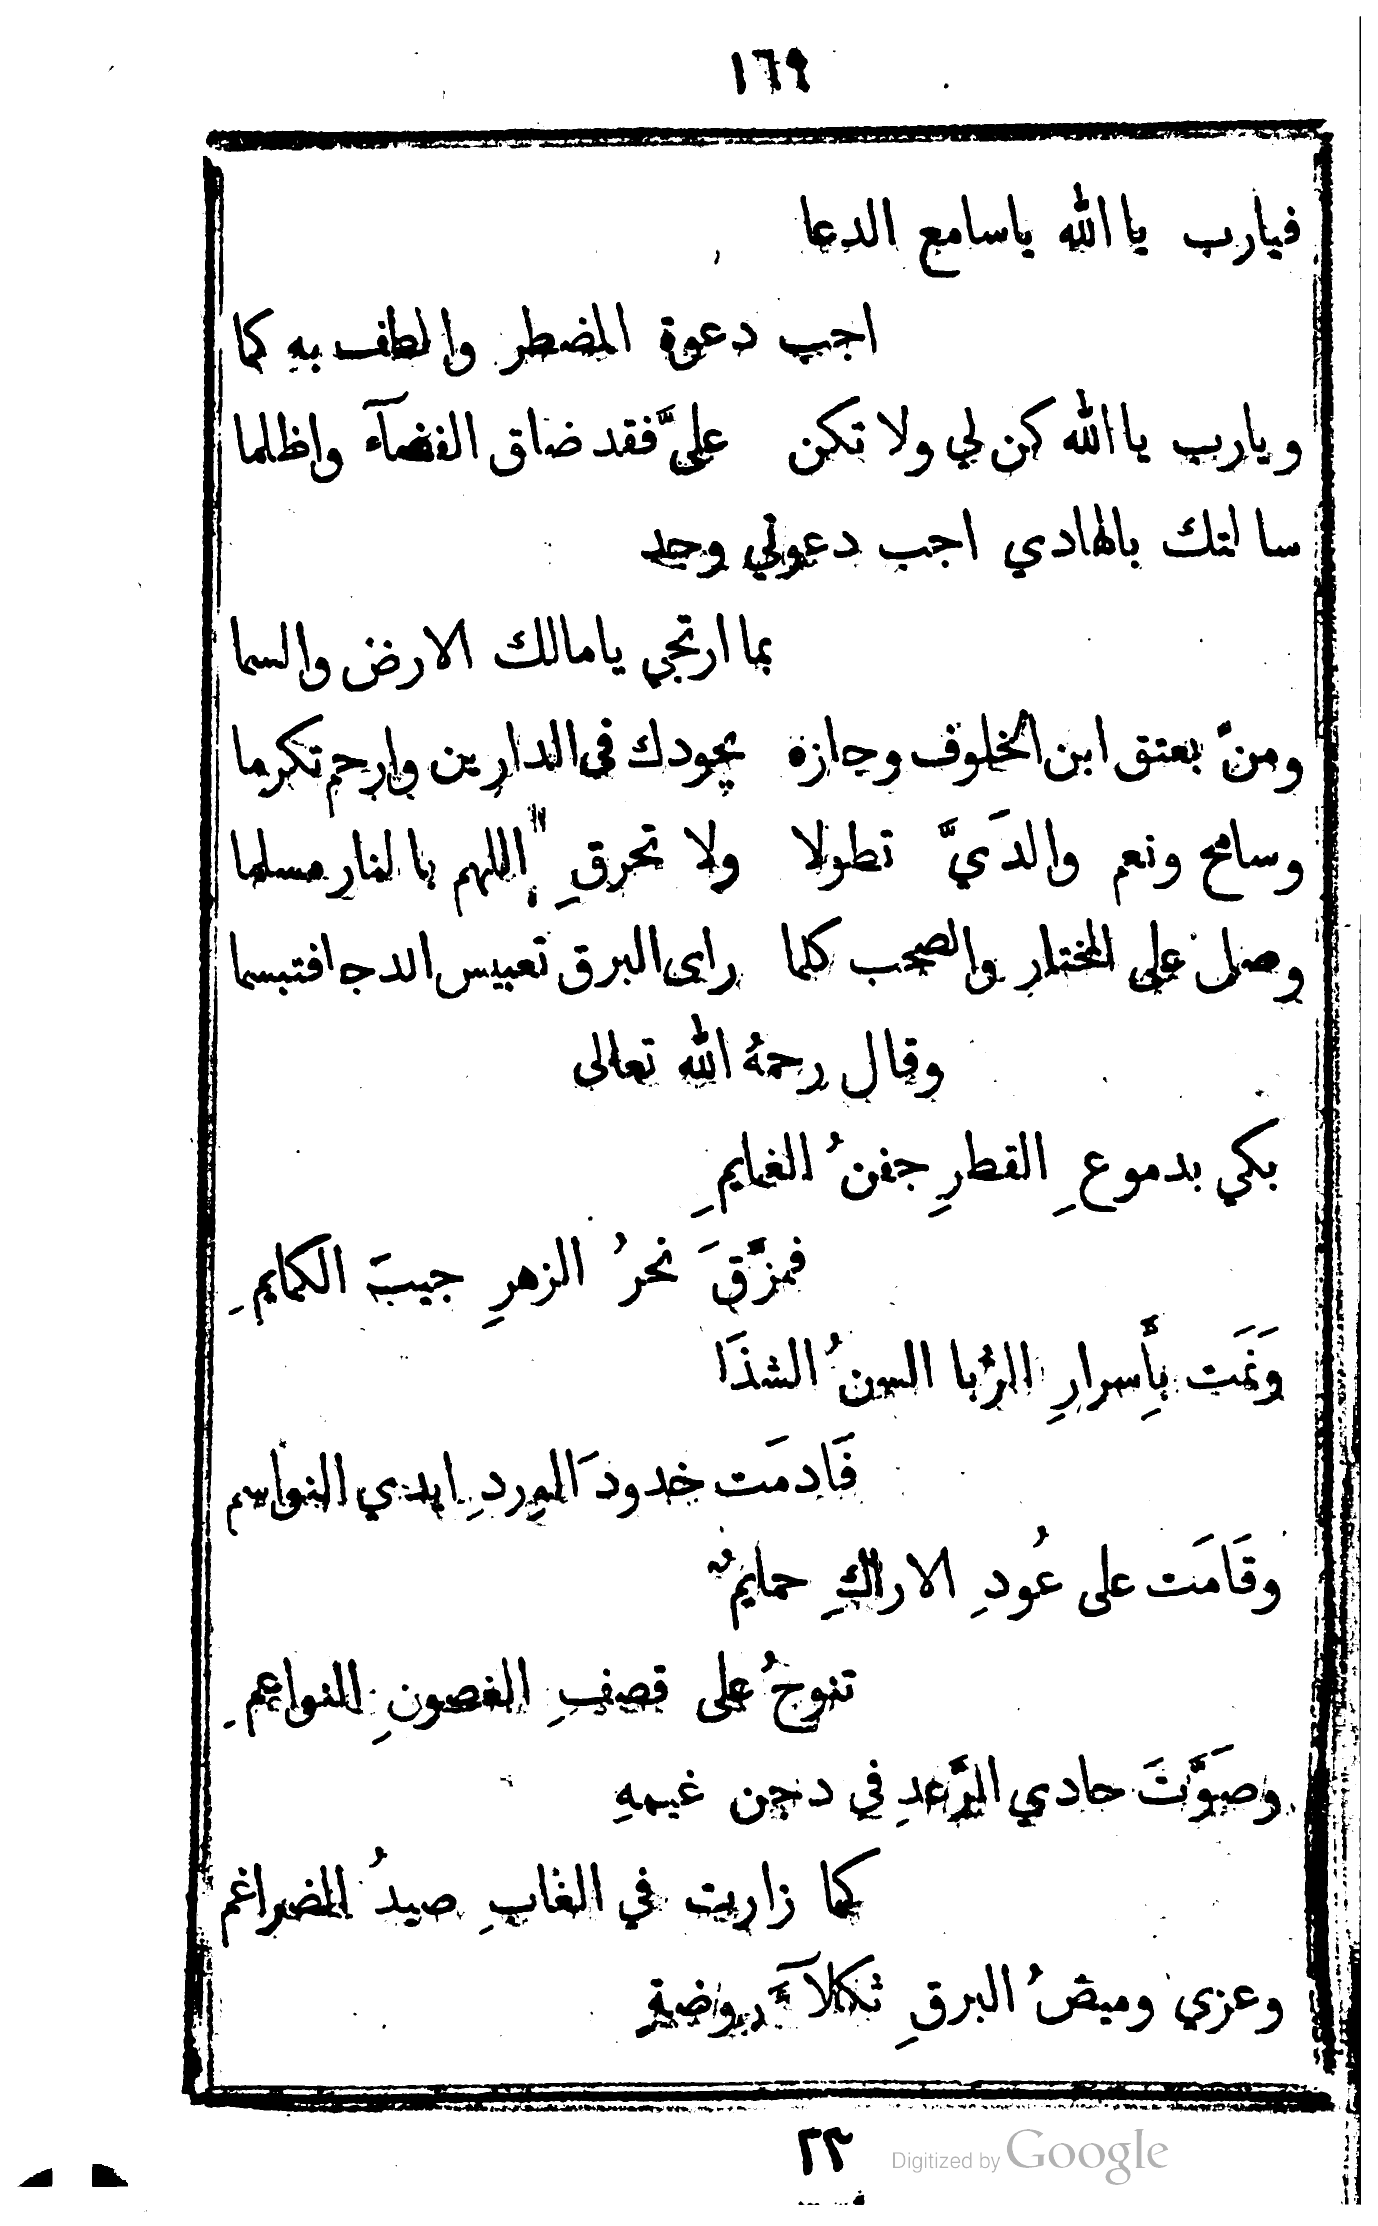 ١٦٩
فيارب ياالله ياسامع الدعا
اجب دعوة المضطر والطف به كما
ويارب ياالله كن لي ولا تكن علىَّ فقد ضاق الفضآء واظلما
سالتك بالهادي اجب دعوتي وجد
بما ارتجي يامالك الارض والسما
ومنّ بعتق ابن الخلوف وجازه بجودك في الدارين وارحم تكرما
وسامح ونعم والدَيَّ تطولا ولا تحرقِ اللهم بالنار مسلما
وصل على المختار والصحب كلما راى البرق تعبيس الدجا فتبسما
وقال رحمهُ الله تعالى
بكي بدموعِ القطرِ جفنُ الغمايمِ
فمزَّقَ نحرُ الزهرِ جيبَ الكمايمِ
وَنَمَت بِأَسرارِ الرُّبا السنُ الشذَا
فَادمَت خدودَ الوردِ ايدي النواسم
وقَامَت على عُودِ الاراكِ حمايمٌ
تنوحُ على قصفِ الغصونِ النواعمِ
وصَوَّتَ حادي الرَّعدِ في دجن غيمهِ
كما زاريت في الغابِ صيدُ الضراغم
وعزي وميضُ البرقِ ثكلآءَ روضةٍ
٢٢
Digitized by Google